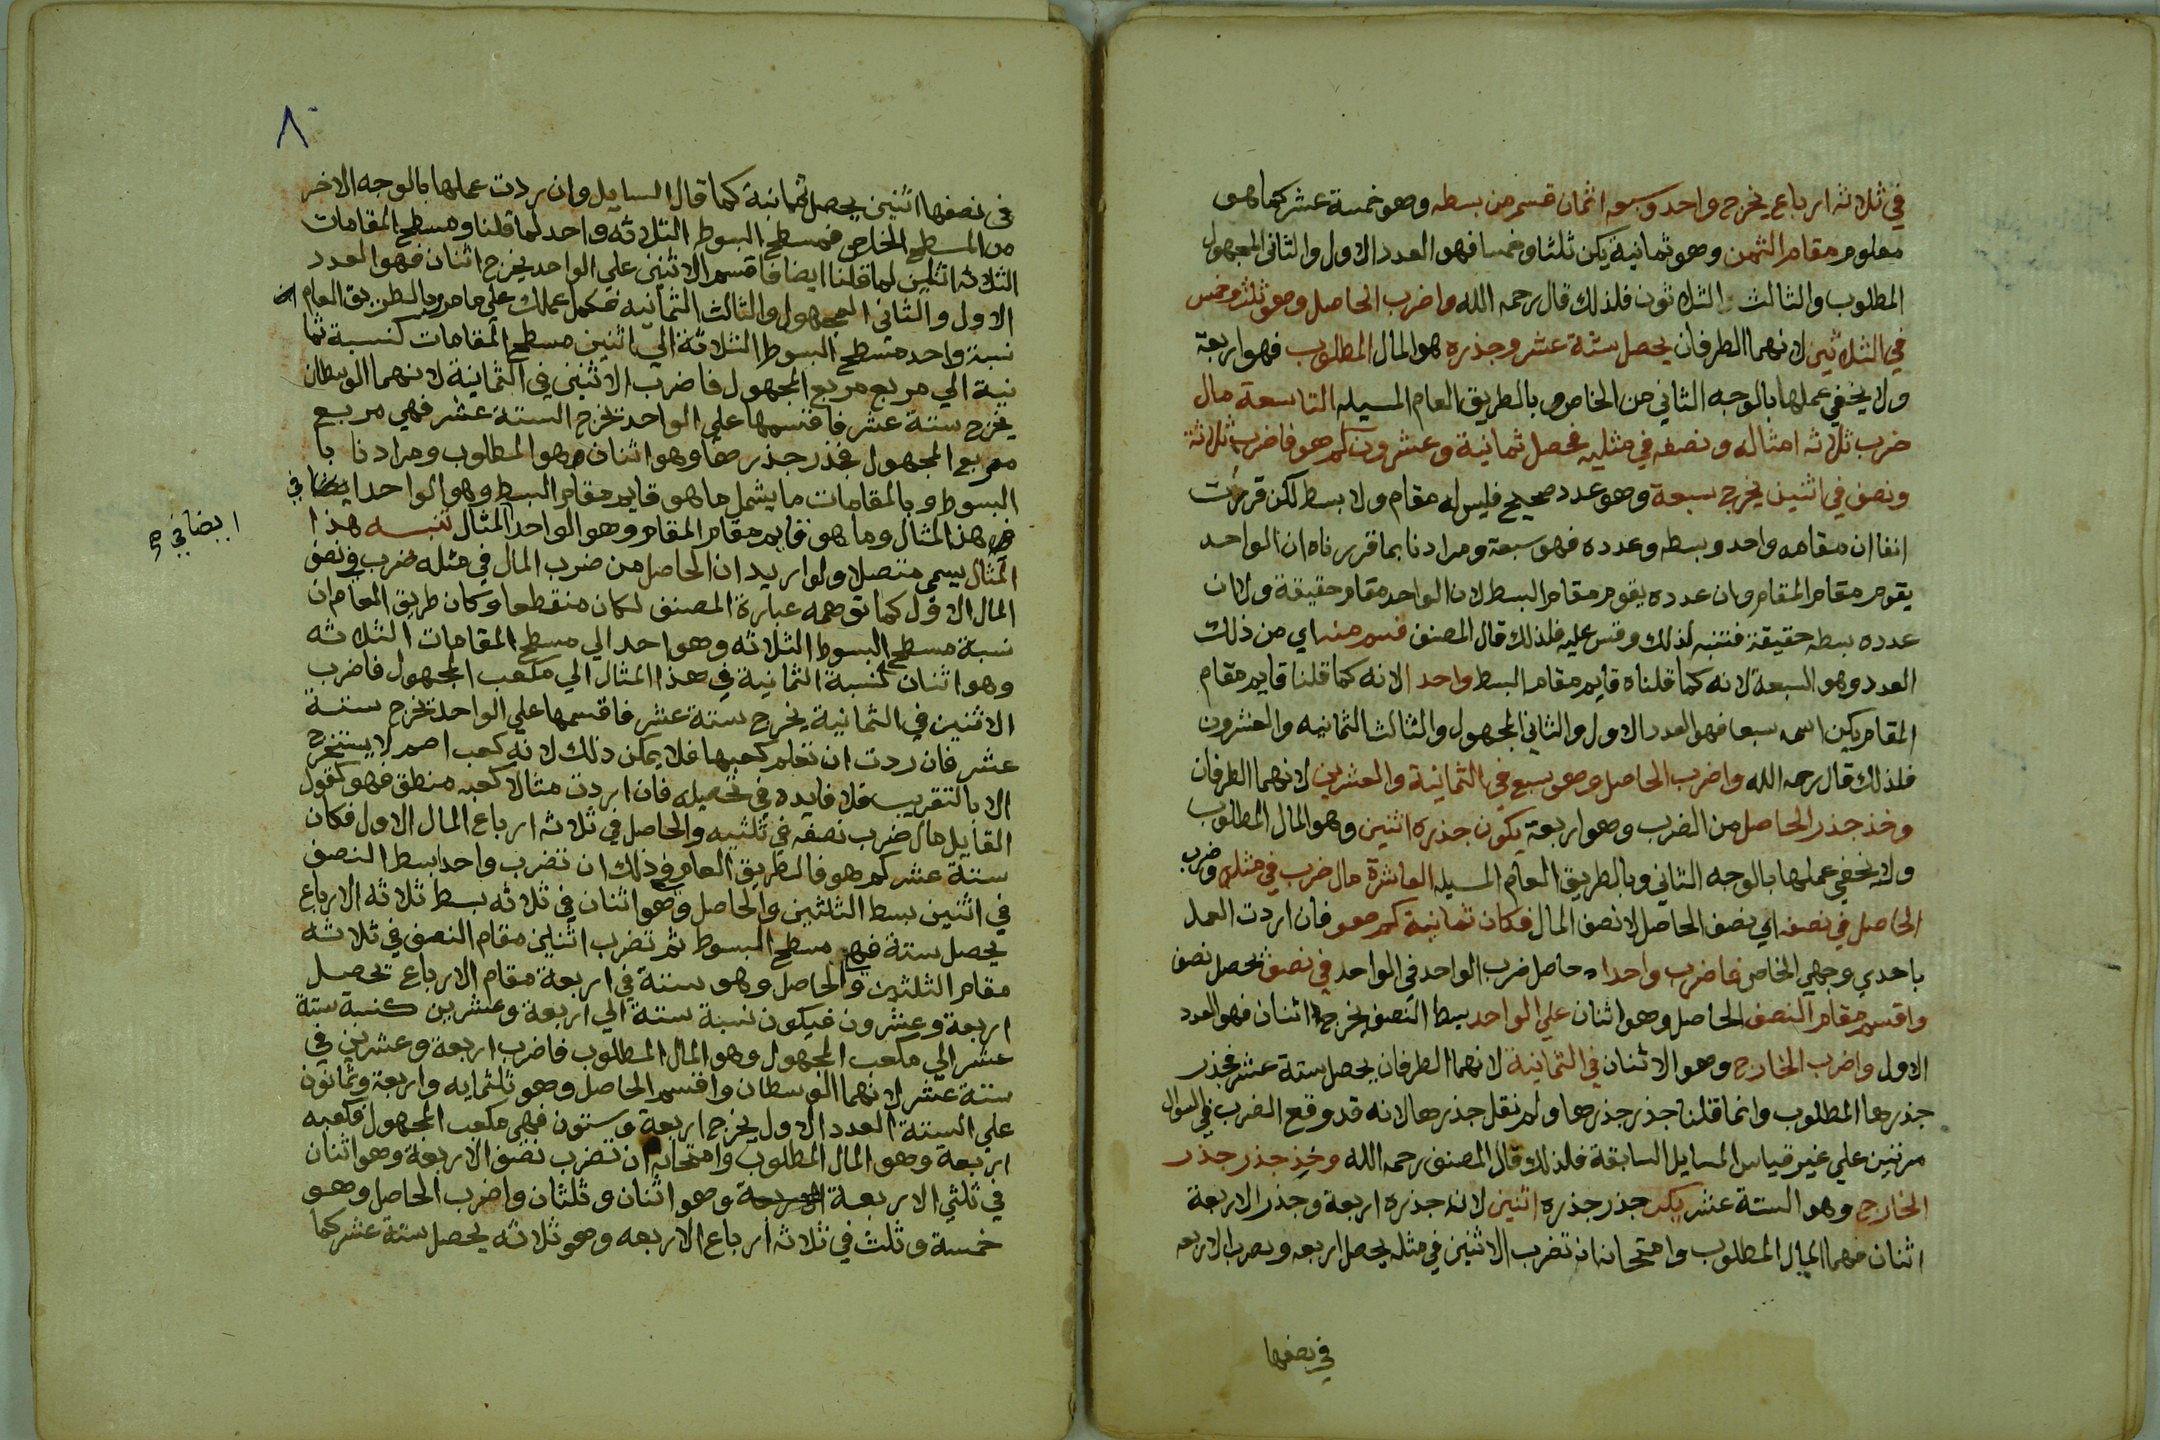 في ثلاثة ارباع يخرج واحد وسبعة اثمان قسم من بسطه وهو خمسة عشر كما هو
معلوم مقام الثمن وهو ثمانية يكن ثلثا وخمسا فهو العدد الاول والثاني المجهول
المطلوب والثالث الثلاثون فلذلك قال رحمه الله واضرب الحاصل وهو ثلث وخمس
في الثلاثين لانهما الطرفان يحصل ستة عشر وجذره هو المال المطلوب فهو اربعة
ولا يخفي عملها بالوجه الثاني من الخاص وبالطريق العام المسيله التاسعة مال
ضرب ثلاثة امثاله ونصفه في مثليه فحصل ثمانية وعشرون كم هو فاضرب ثلاثة
ونصف في اثنين يخرج سبعة وهو عدد صحيح فليس له مقام ولا بسط لكن قررت
انفا ان مقامه واحد وبسطه وعدده فهو سبعة ومرادنا بما قررناه ان الواحد
يقوم مقام المقام وان عدده يقوم مقام البسط لان الواحد مقام حقيقة ولا ان
عدده بسطه حقيقة فتنبه لذلك وقس عليه فلذلك قال المصنف قسم منه اي من ذلك
العدد وهو السبعة لانه كما قلناه قايم مقام البسط واحد الانه كما قلنا قايم مقام
المقام يكن اسمه سبعا فهو العدد الاول والثاني المجهول والثالث الثمانيه والعشرون
فلذلك قال رحمه الله واضرب الحاصل وهو سبع في الثمانية والعشرين لانهما الطرفان
وخذ جذر الحاصل من الضرب وهو اربعة يكون جذره اثنين وهو المال المطلوب
ولا يخفي عملها بالوجه الثاني وبالطريق العام المسيله العاشرة مال ضرب في مثله وضرب
الحاصل في نصفه اي نصف الحاصل لا نصف المال فكان ثمانية كم هو فان اردت العمل
باحدي وجهي الخاص فاضرب واحدا حاصل ضرب الواحد في الواحد في نصف يحصل نصف
واقسم مقام النصف الحاصل وهو اثنان علي الواحد بسط النصف يخرج اثنان فهو العدد
الاول واضرب الخارج وهو الاثنان في الثمانية لانهما الطرفان يحصل ستة عشر فجذر
جذرها المطلوب وانما قلنا جذر جذرها ولم نقل جذرها لانه قد وقع الضرب في السوال
مرتين علي غير قياس المسايل السابقة فلذلك قال المصنف رحمه الله وخذ جذر جذر
الخارج وهو الستة عشر يكن جذر جذره اثنين لان جذره اربعة وجذر الاربعة
اثنان فهما المال المطلوب وامتحانه ان تضرب الاثنين في مثله يحصل اربعه وتضرب الاربعه
في نصفها
٨
في نصفها اثنين يحصل ثمانية كما قال السايل وان ردت عملها بالوجه الاخر
من المسطح الخاص فمسطح البسوط الثلاثه واحد لما قلنا ومسطح المقامات
الثلاثه اثنين لما قلنا ايضا فاقسم الاثنين علي الواحد يخرج اثنان فهو العدد
الاول والثاني المجهول والثالث الثمانيه فكمل عملك علي ما مر وبالطريق العام
نسبة واحد مسطح البسوط الثلاثة الي اثنين مسطح المقامات كنسبة ثما
نية الي مربع مربع المجهول فاضرب الاثنين في الثمانية لانهما الوسطان
يخرج ستة عشر فاقسمها علي الواحد تخرج الستة عشر فهي مربع
مربع المجهول فجذر جذرها وهو اثنان هو المطلوب ومرادنا با
البسوط وبالمقامات ما يشمل ما هو قايم مقام البسط وهو الواحد ايضا في
ايضا في صح
هذا المثال وما هو قايم مقام المقام وهو الواحد المثال تنبيه هذا
المثال يسمي متصلا ولو اريد ان الحاصل من ضرب المال في مثله ضرب في نصف
المال الاول كما توهمه عبارة المصنف لكان منقطعا وكان طريق العام ان
نسبة مسطح البسوط الثلاثه وهو احد الي مسطح المقامات الثلاثه
وهو اثنان كنسبة الثمانية في هذا المثال الي مكعب المجهول فاضرب
الاثنين في الثمانية يخرج ستة عشر فاقسمها علي الواحد تخرج ستة
عشر فان ردت ان تعلم كعبها فلا يمكن ذلك لانه كعب اصم لا يستخرج
الا بالتقريب فلا فايده في تحصيله فان اردت مثالا كعبه منطق فهو كقول
القايل مال ضرب نصفه في ثلثيه والحاصل في ثلاثه ارباع المال الاول فكان
ستة عشر كم هو فالطريق العام في ذلك ان تضرب واحدا بسط النصف
في اثنين بسط الثلثين والحاصل وهو اثنان في ثلاثه بسط ثلاثه الارباع
يحصل ستة فهو مسطح البسوط ثم تضرب اثنين مقام النصف في ثلاثه
مقام الثلثين والحاصل وهو ستة في اربعة مقام الارباع تحصل
اربعة وعشرون فيكون نسبة ستة الي اربعة وعشرين كنسبة ستة
عشر الي مكعب المجهول وهو المال المطلوب فاضرب اربعة وعشرين في
ستة عشر لانهما الوسطان واقسم الحاصل وهو ثلثمايه واربعة وثمانون
علي الستة العدد الاول يخرج اربعة وستون فهي مكعب المجهول فكعبه
اربعة وهو المال المطلوب وامتحانه ان تضرب نصف الاربعة وهو اثنان
في ثلثي الاربعة وهو اثنان وثلثان واضرب الحاصل وهو
خمسة وثلث في ثلاثه أرباع الاربعه وهو ثلاثه يحصل ستة عشر كما